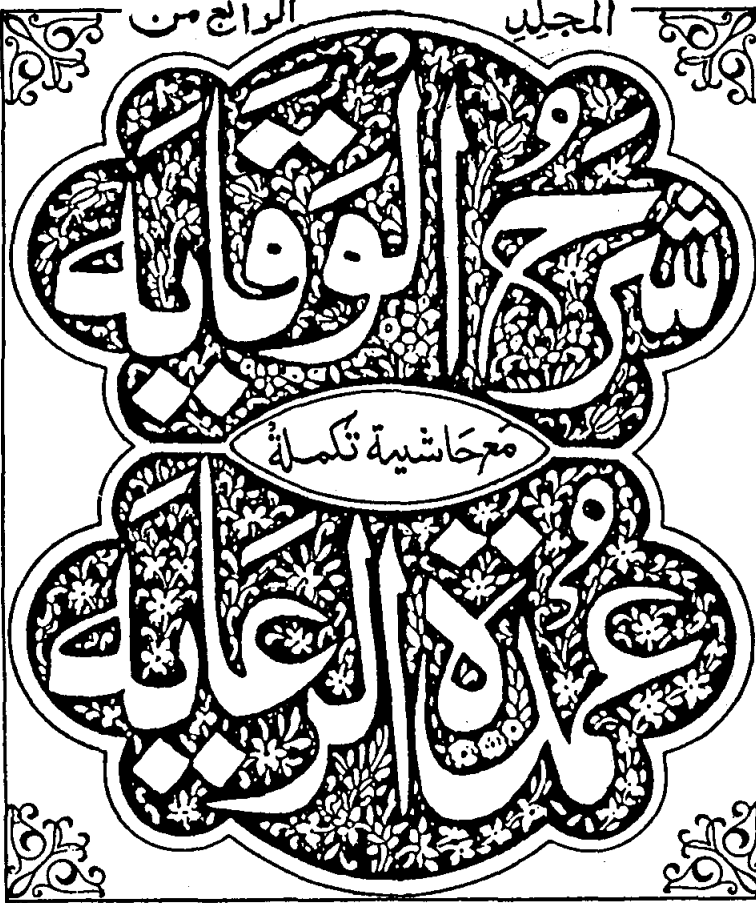 المجلد الرابع من
شَرْحُ الْوِقَايَة
مَع حَاشية تكملةُ
عُمْدَةُ الرِّعَايَة